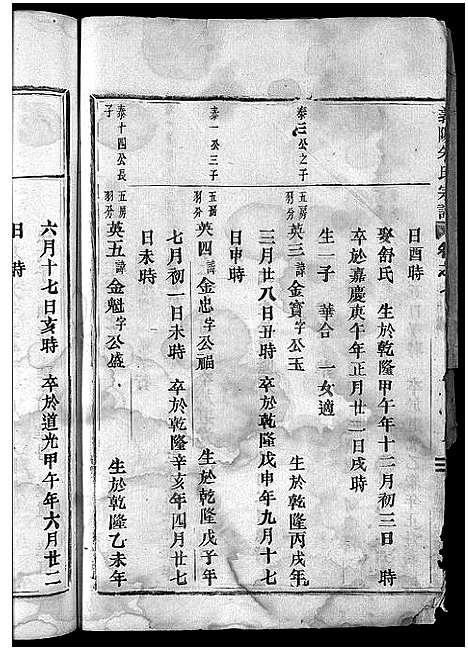 日酉時
娶舒氏　生於乾隆甲午年十二月初三日　時
卒於嘉慶庚午年正月廿二日戌時
生一子　華合　一女適
泰三公之子　五房羽分　英三　諱金寳字公玉　生於乾隆丙戌年
三月廿八日丑時　卒於乾隆戊申年九月十七
日申時
泰一公三子　五房羽分　英四　諱金忠字公福　生於乾隆戊子年
七月初一日未時　卒於乾隆辛亥年四月廿七
日未時
泰十四公長子　五房羽分　英五　諱金魁字公盛　生於乾隆乙未年
六月十七日亥時　卒於道光甲午年六月廿二
日　時